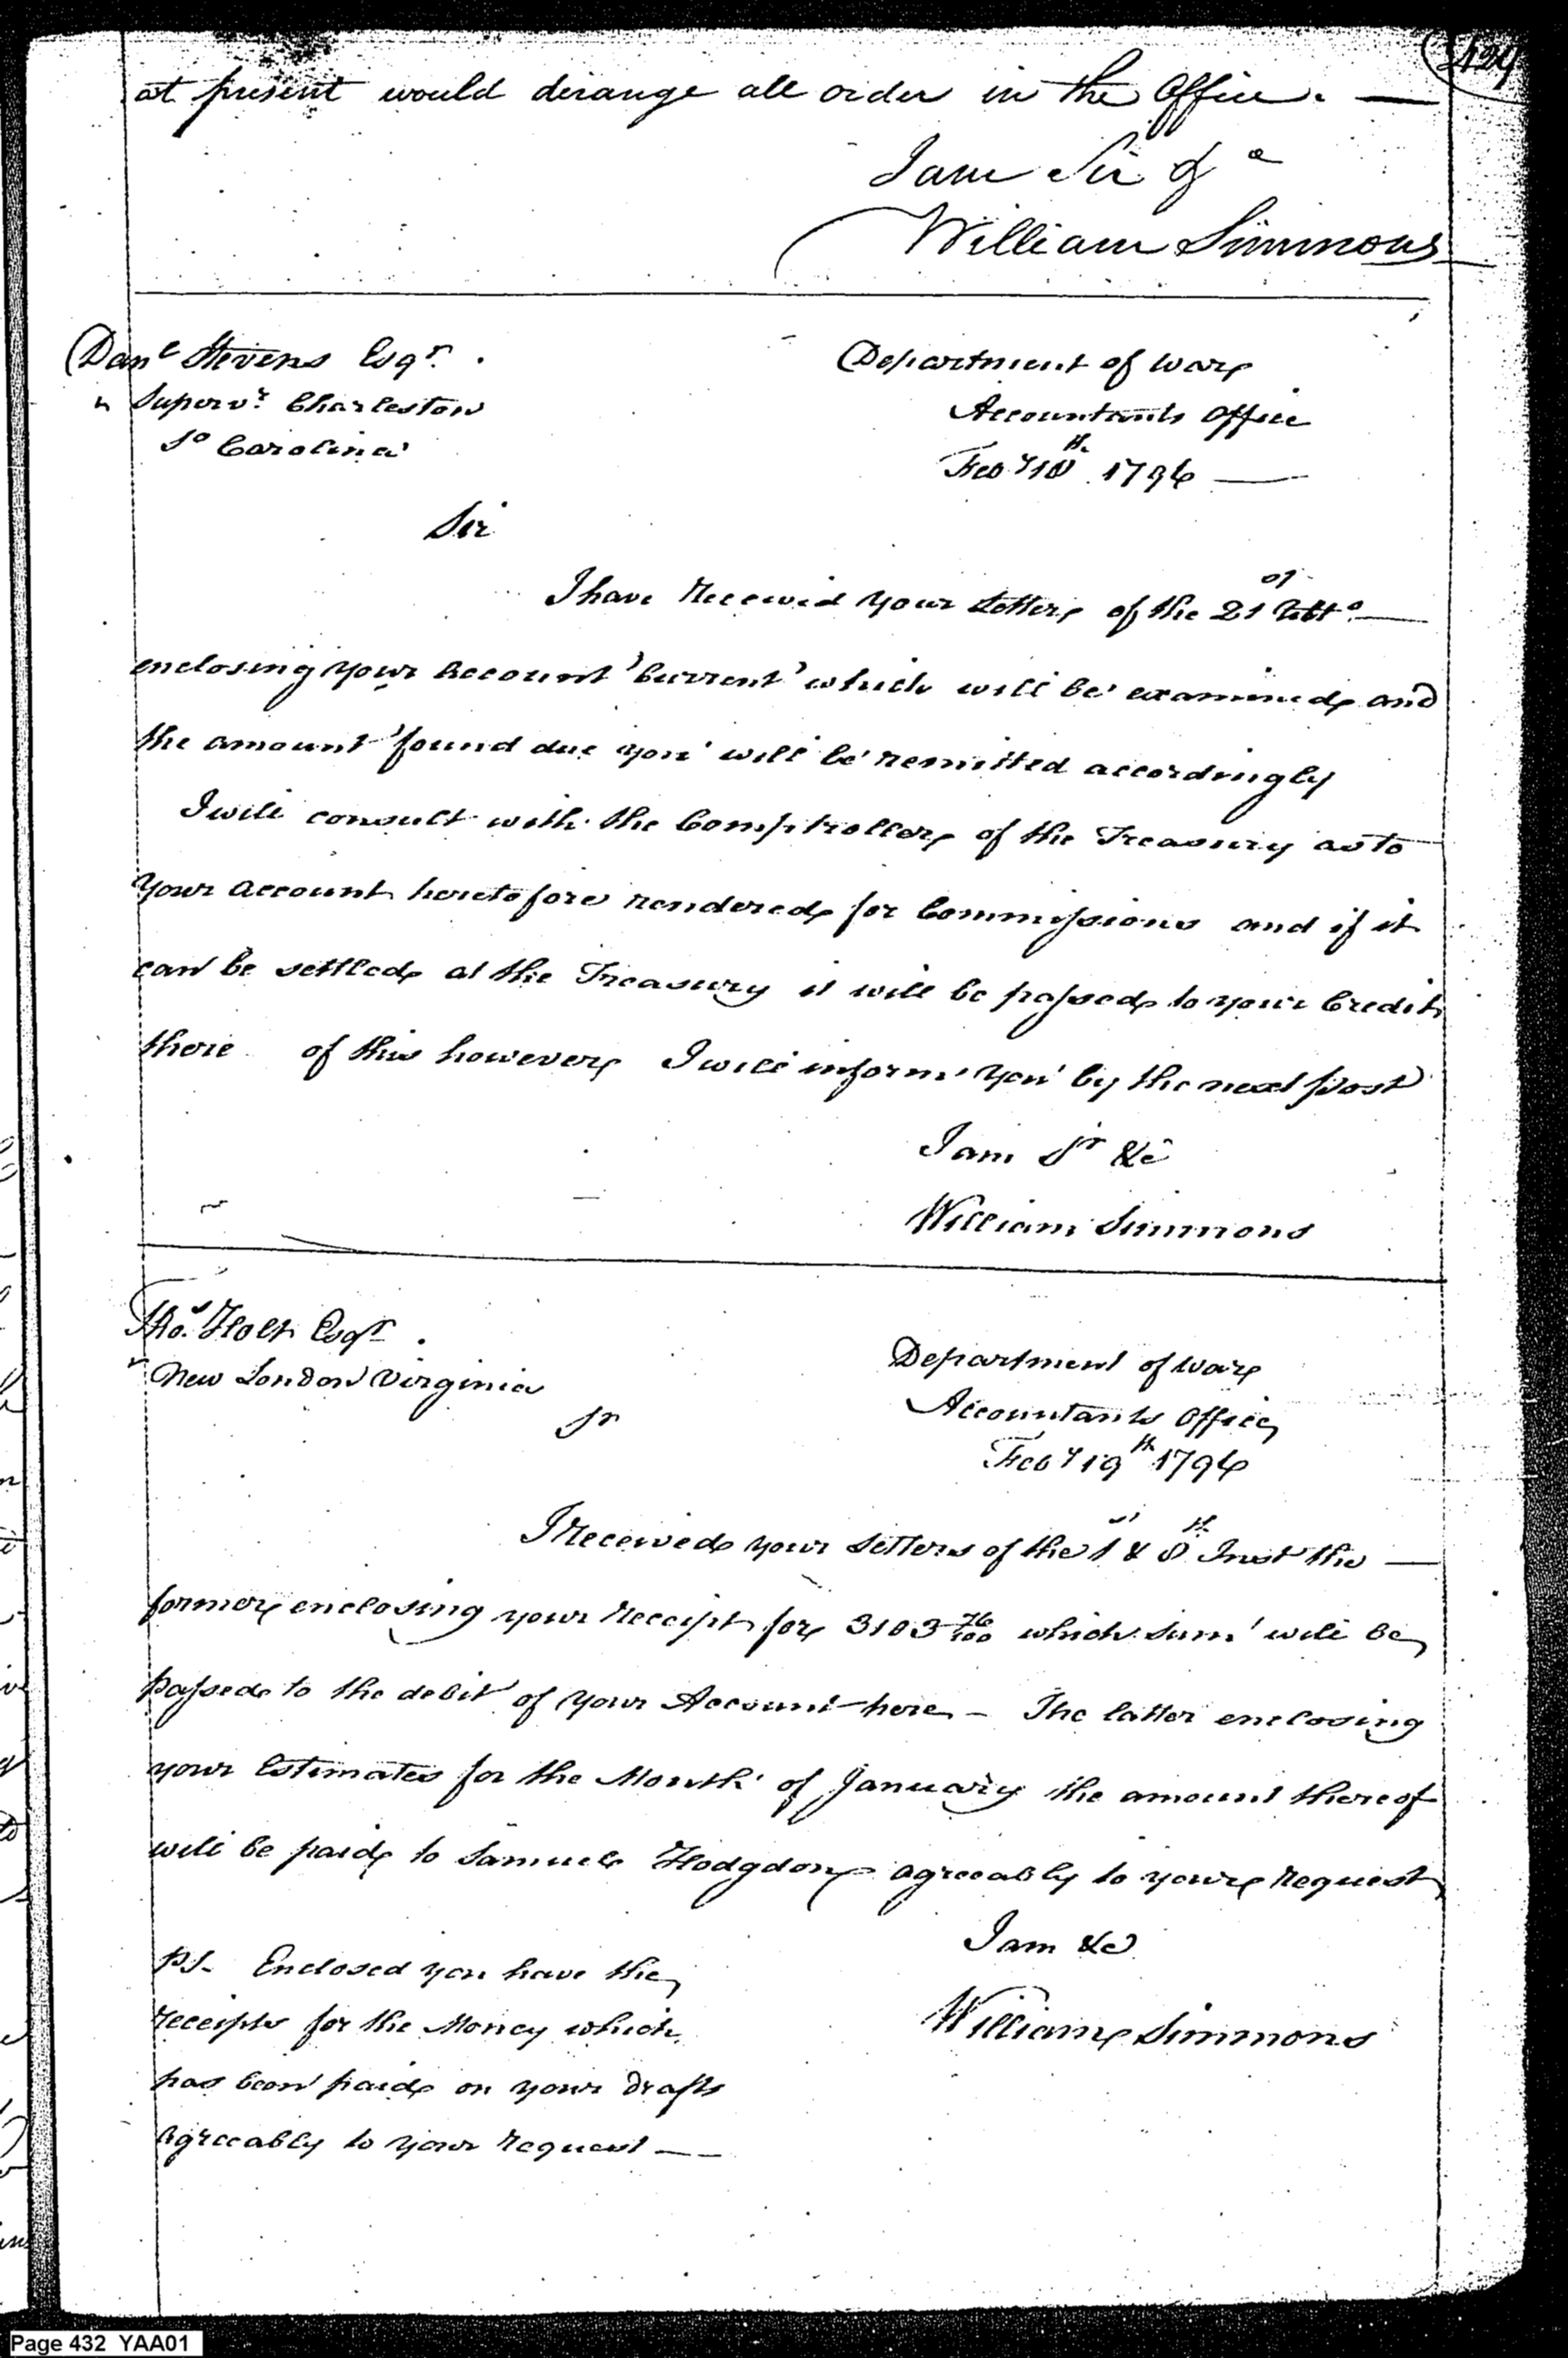 429
at present would derange all order in the Office. —
I am Sir &a
William Simmons
Danl Stevens Esqr. Department of War
Supervr. Charleston Accountants Office
So Carolina Feby 18th 1796 —
Sir
I have Received your Letter of the 21st Ulto. —
enclosing your Account Current which will be examined and
the amount found due you will be remitted accordingly
I will consult with the Comptroller of the Treasury as to
your account heretofore rendered for Commissions and if it
can be settled at the Treasury it will be passed to your Credit
there of this however I will inform you by the next post
I am Sr &c
William Simmons
Thos. Holt Esqr. Department of War
New London Virginia Accountants Office
Sr Feby 19th 1796
I Received your Letters of the 1st & 8th Inst the —
former enclosing your Receipt for 3103 76/100 which sum will be
passed to the debit of your Account here — The latter enclosing
your Estimates for the Month of January the amount thereof
will be paid to Samuel Hodgdon agreeably to your request
I am &c
William Simmons
PS. Enclosed you have the
receipts for the Money which
has been paid on your drafts
agreeably to your request — —
Page 432 YAA01